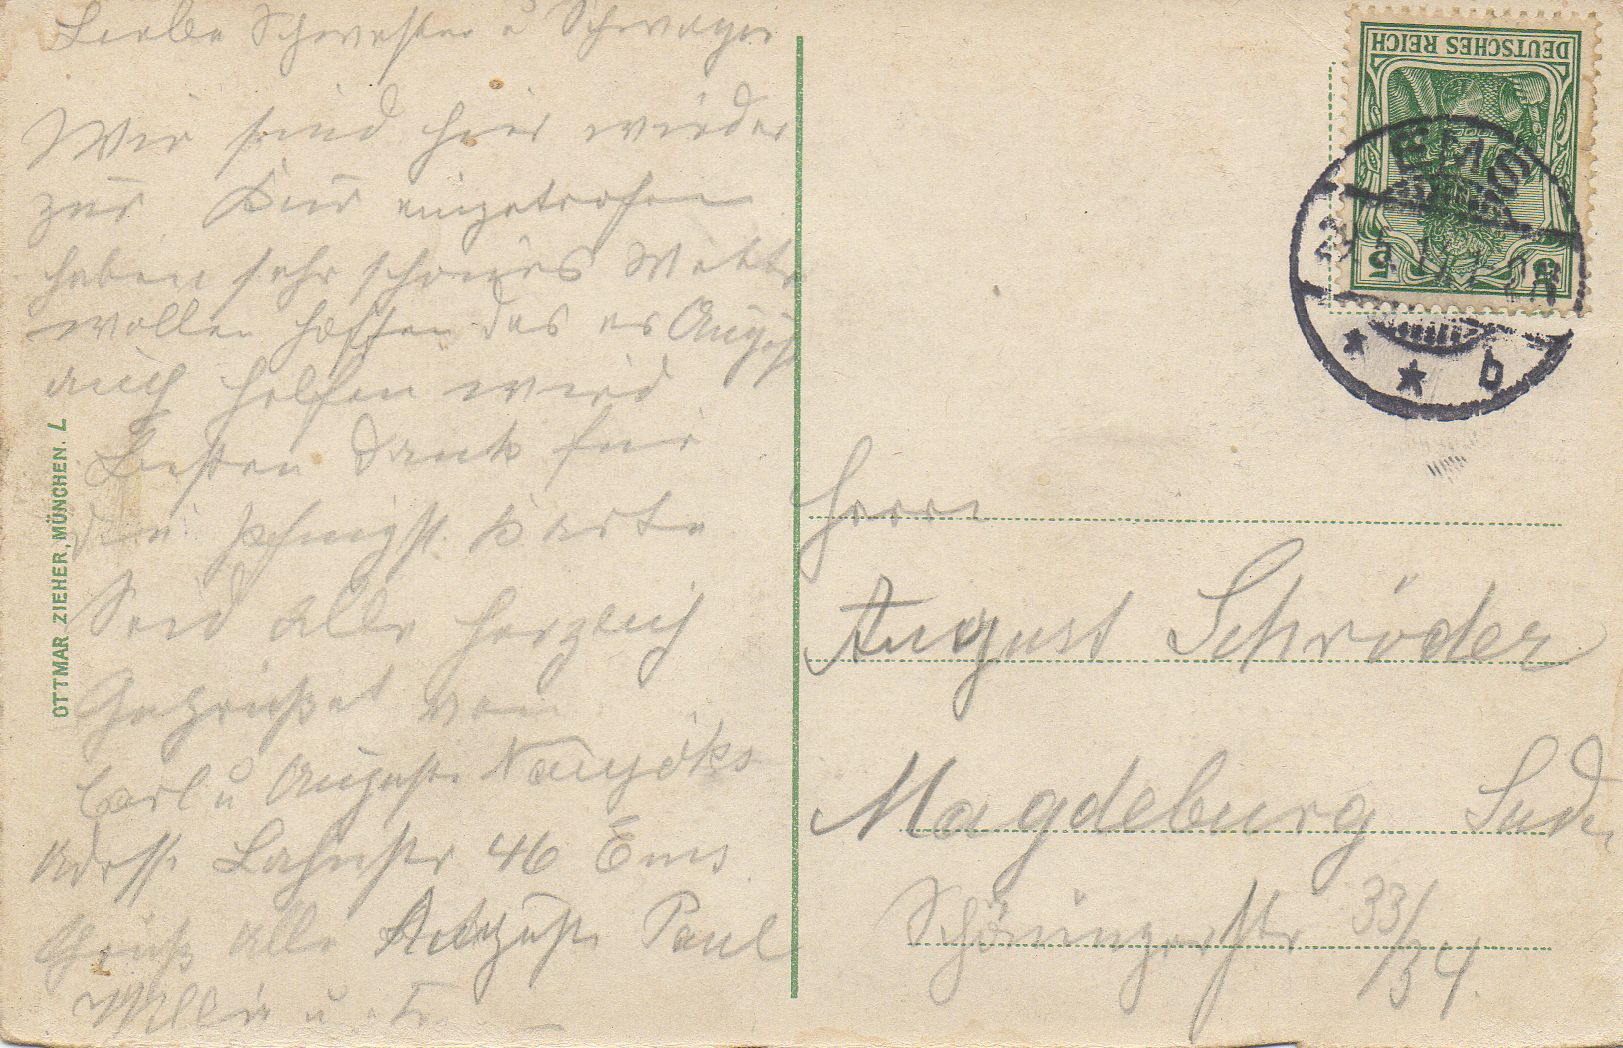 Liebe Schwester u Schwager
Wir sind hier wieder
zur Kur eingetrofen
haben sehr schönes Wetter
wollen hoffen das es August
auch helfen wird
Besten Dank für
die Pfingst Karte
Seid alle herzlich
Gegrüßet von
Carl u Auguste
Adresse Lahnstr 46 Ems
Grüß alle Auguste Paul
Willi u
OTTMAR ZIEHER, MÜNCHEN. L
DEUTSCHES REICH
5 5
EMS
b
Herrn
August Schröder
Magdeburg Suden
Schöningerstr 33/34.